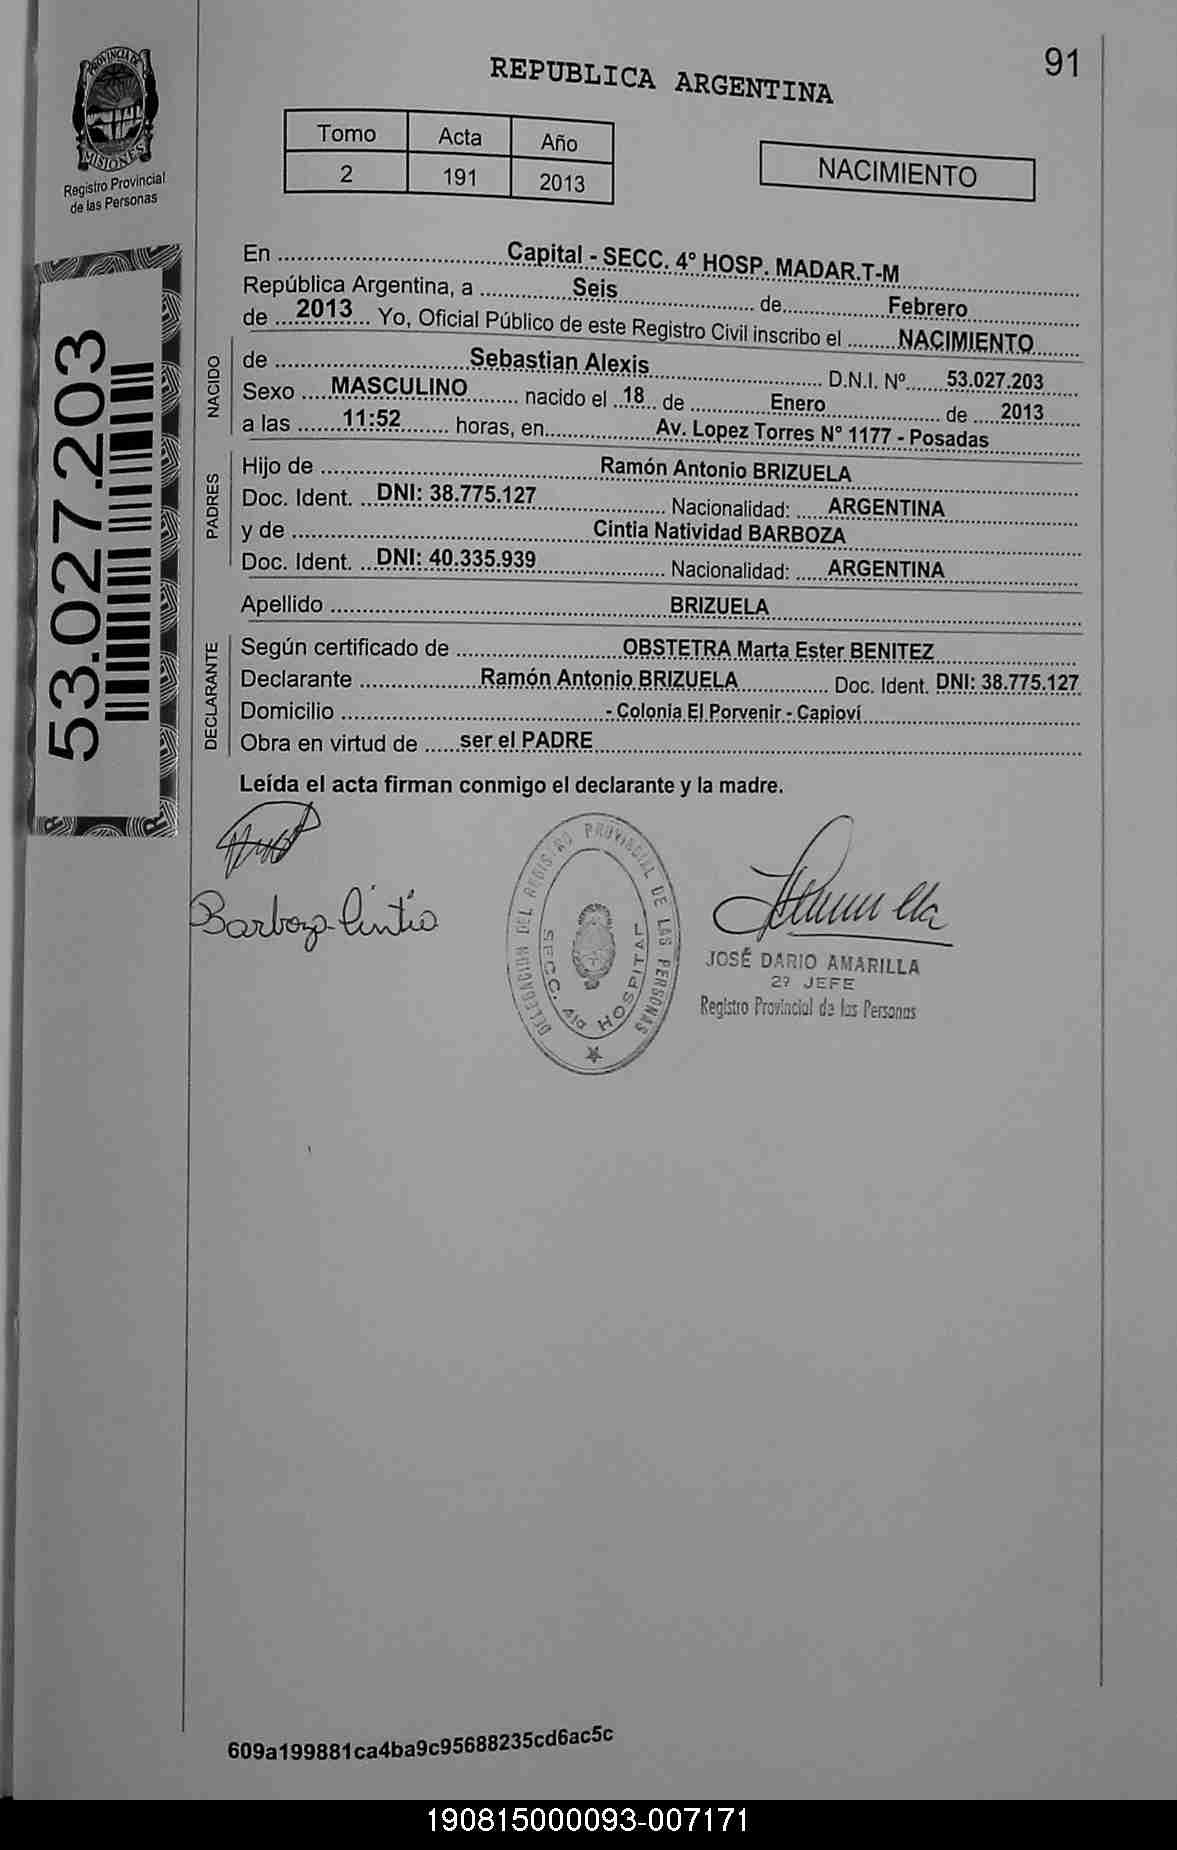 91
REPUBLICA ARGENTINA
PROVINCIA DE
MISIONES
Registro Provincial
de las Personas
Tomo Acta Año
2 191 2013
NACIMIENTO
53.027.203
En Capital - SECC. 4° HOSP. MADAR.T-M
República Argentina, a Seis de Febrero
de 2013 Yo, Oficial Público de este Registro Civil inscribo el NACIMIENTO
NACIDO
de Sebastian Alexis D.N.I. Nº 53.027.203
Sexo MASCULINO nacido el 18 de Enero de 2013
a las 11:52 horas, en Av. Lopez Torres N° 1177 - Posadas
PADRES
Hijo de Ramón Antonio BRIZUELA
Doc. Ident. DNI: 38.775.127 Nacionalidad: ARGENTINA
y de Cintia Natividad BARBOZA
Doc. Ident. DNI: 40.335.939 Nacionalidad: ARGENTINA
Apellido BRIZUELA
DECLARANTE
Según certificado de OBSTETRA Marta Ester BENITEZ
Declarante Ramón Antonio BRIZUELA Doc. Ident. DNI: 38.775.127
Domicilio - Colonia El Porvenir - Capioví
Obra en virtud de ser el PADRE
Leída el acta firman conmigo el declarante y la madre.
Barboza Cintia
DELEGACION DEL REGISTRO PROVINCIAL DE LAS PERSONAS
SECC. 4ta HOSPITAL
JOSÉ DARIO AMARILLA
2º JEFE
Registro Provincial de las Personas
609a199881ca4ba9c95688235cd6ac5c
190815000093-007171